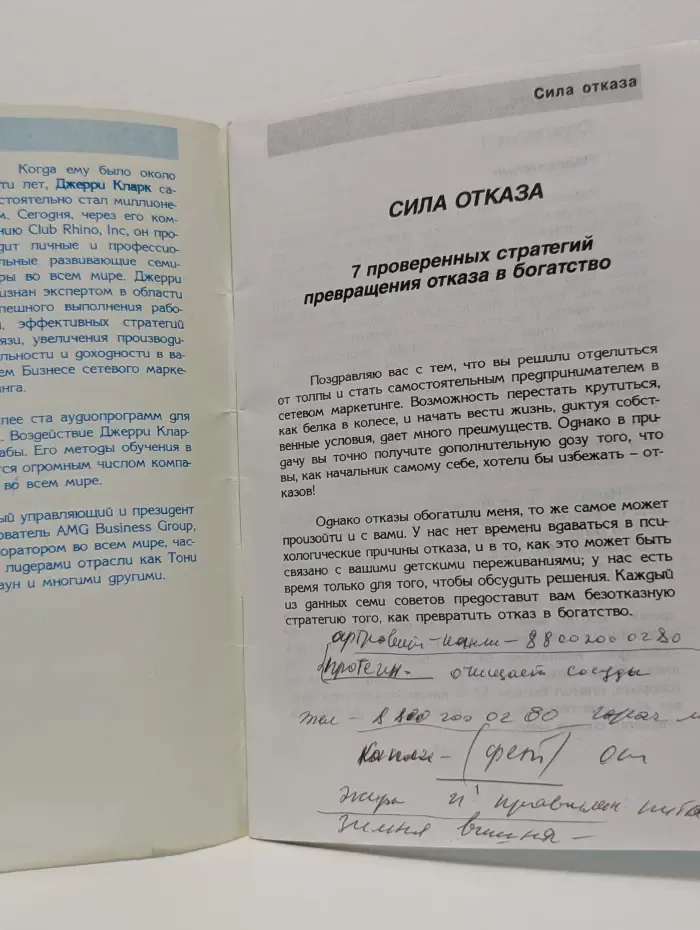 Когда ему было около
ти лет, Джерри Кларк са-
стоятельно стал миллионе-
м. Сегодня, через его ком-
нию Club Rhino, Inc, он про-
дит личные и профессио-
льные развивающие семи-
ры во всем мире. Джерри
изнан экспертом в области
пешного выполнения рабо-
, эффективных стратегий
язи, увеличения производи-
льности и доходности в ва-
ем Бизнесе сетевого марке-
нга.
лее ста аудиопрограмм для
. Воздействие Джерри Клар-
абы. Его методы обучения в
тся огромным числом компа-
во всем мире.
ый управляющий и президент
ователь AMG Business Group,
оратором во всем мире, час-
лидерами отрасли как Тони
аун и многими другими.
Сила отказа
СИЛА ОТКАЗА
7 проверенных стратегий
превращения отказа в богатство
Поздравляю вас с тем, что вы решили отделиться
от толпы и стать самостоятельным предпринимателем в
сетевом маркетинге. Возможность перестать крутиться,
как белка в колесе, и начать вести жизнь, диктуя собст-
венные условия, дает много преимуществ. Однако в при-
дачу вы точно получите дополнительную дозу того, что
вы, как начальник самому себе, хотели бы избежать – от-
казов!
Однако отказы обогатили меня, то же самое может
произойти и с вами. У нас нет времени вдаваться в пси-
хологические причины отказа, и в то, как это может быть
связано с вашими детскими переживаниями; у нас есть
время только для того, чтобы обсудить решения. Каждый
из данных семи советов предоставит вам безотказную
стратегию того, как превратить отказ в богатство.
8800200 0280
протеин - очищает сосуды
тел - 8 800 200 02 80 горяч
капли - (фет) от
жира и правилен пита
зимня вишня -